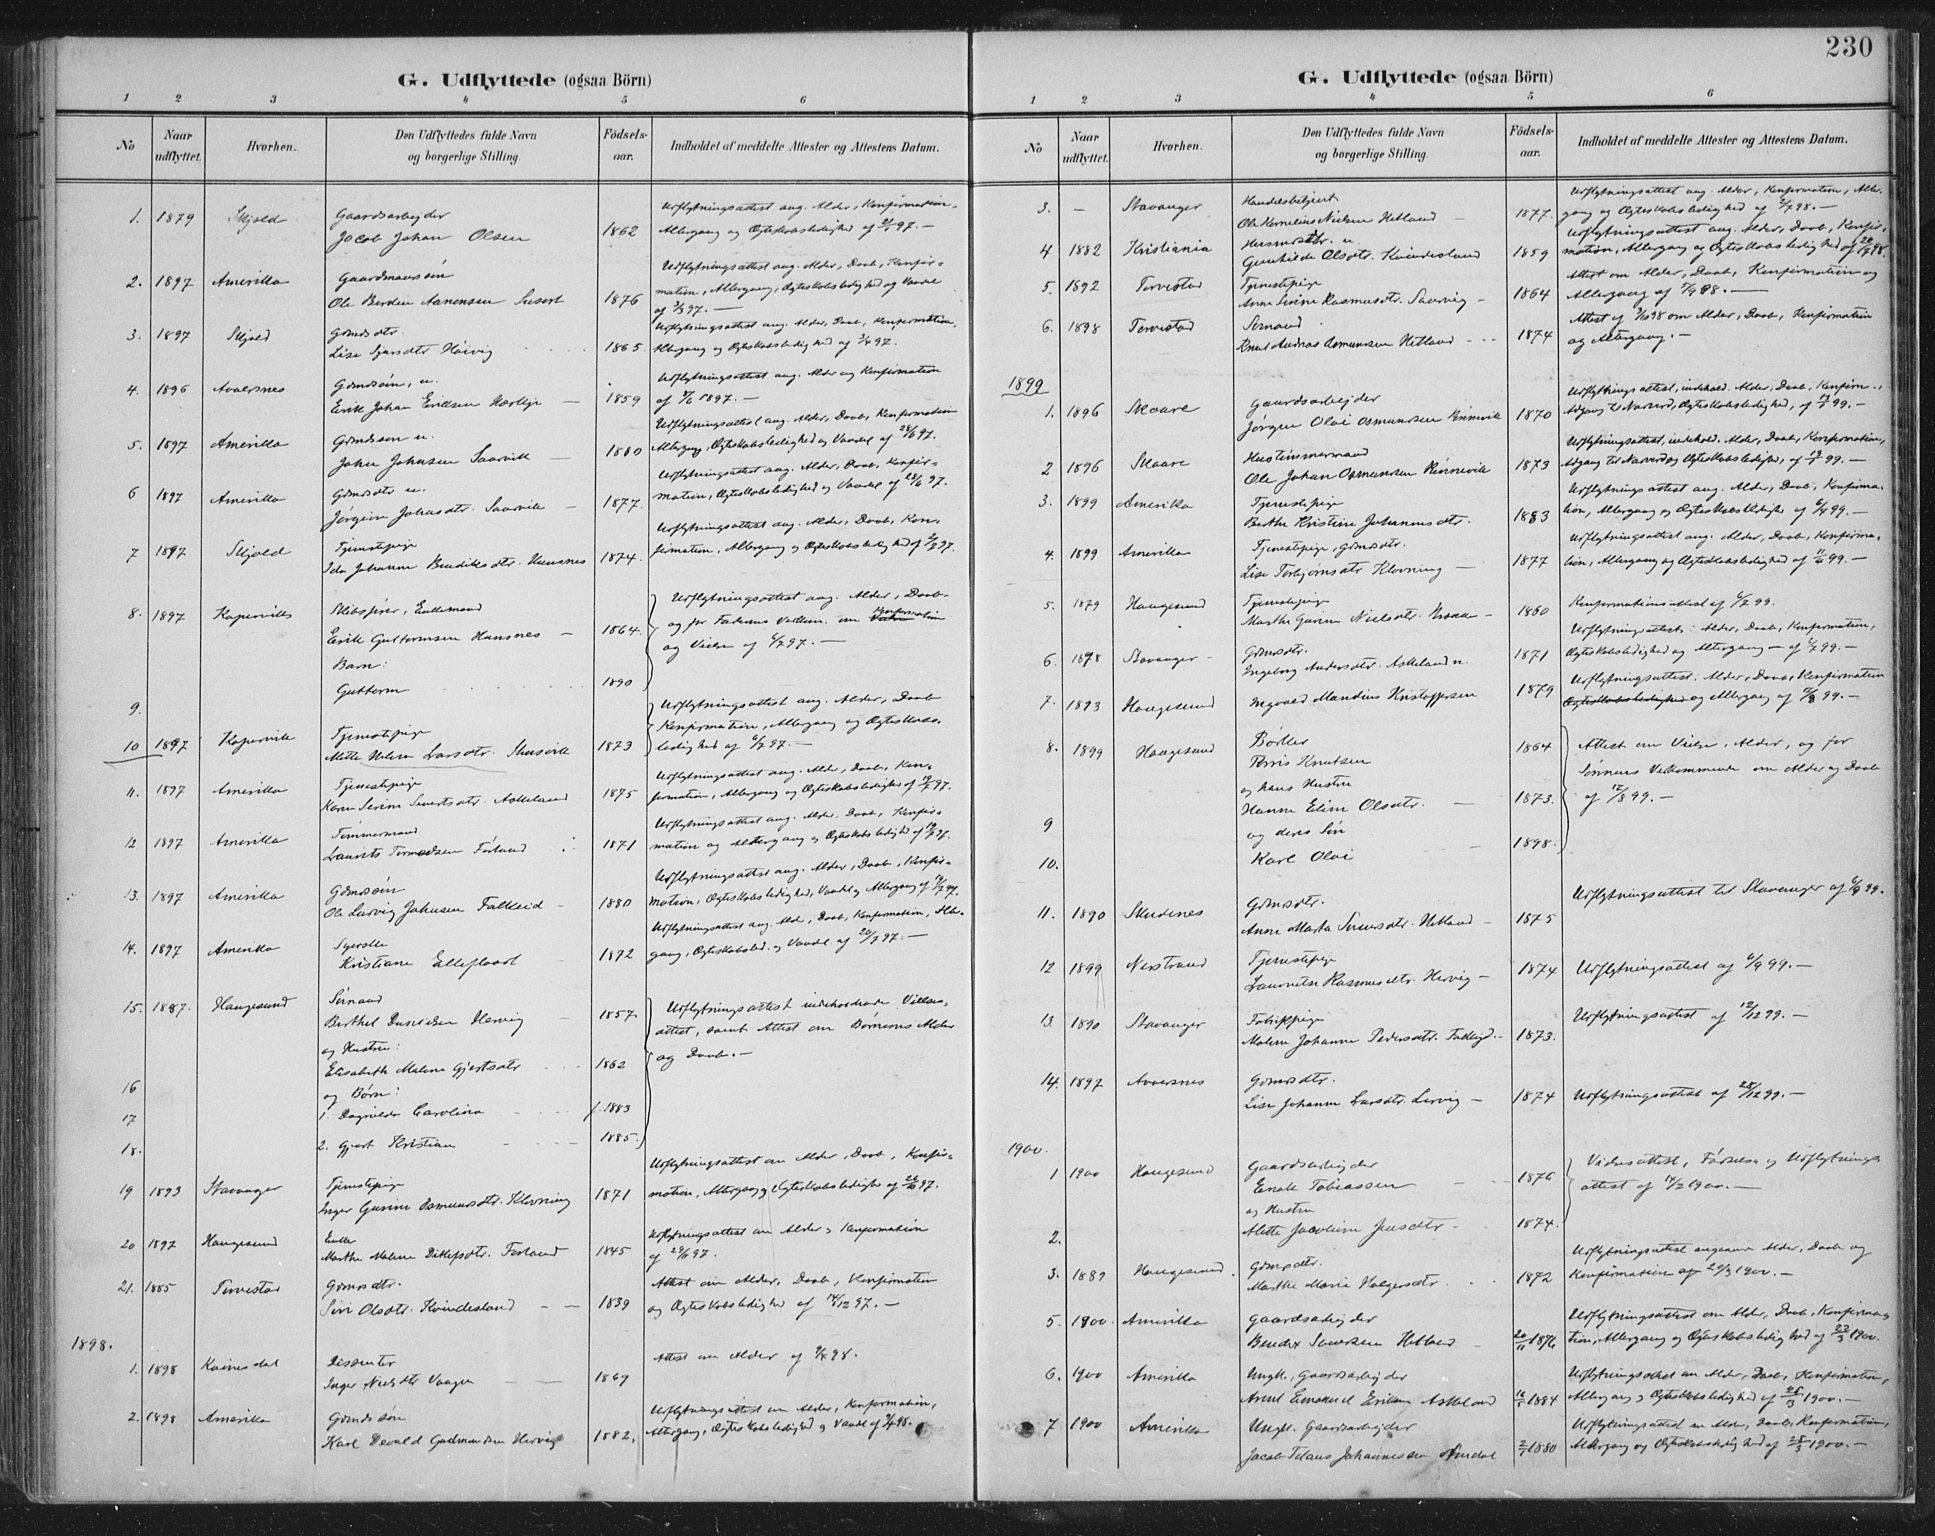 G. Udflyttede (ogsaa Börn)
1 2 3 4 5 6
No
Naar udflyttet.
Hvorhen.
Den Udflyttedes fulde Navn og borgerlige Stilling.
Födsels-aar.
Indholdet af meddelte Attester og Attestens Datum.
1. 1879 Skjold Gaardsarbejder
Jacob Johan Olsen 1862
Udflytningsattest ang. Alder, Konfirmation,
Altergang og Ægteskabsledighed af
2. 1897 Amerika Gaardmandsøn
Ole Aanensen 1876
Udflytningsattest ang. Alder, Daab, Konfir-
mation, Altergang, Ægteskabsledighed og Vandel
3. 1897 Skjold Gdmdsdtr.
Lise 1865
Udflytningsattest ang. Alder, Daab, Konfirmation,
Altergang og Ægteskabsledighed af
4. 1896 Avaldsnes Gdmdsøn, u.
Erik Johan Eriksen 1859
Udflytningsattest ang. Alder og Konfirmation
1897.—
5. 1897 Amerika u.
John Johnsen Saarvik — 1880
Udflytningsattest ang. Alder, Daab, Konfirmation
Altergang, Ægteskabsledighed og Vandel af 28/6 97.
6 1897 Amerika Gdmdsdtr. u.
Jørgine Johnsdtr. Saarvik — 1877.
Udflytningsattest ang. Alder, Daab, Konfir-
mation, Ægteskabsledighed og Vandel af 28/6 97.
7 1897 Skjold Tjenestepige
Ida Johanne Bendiksdtr. 1874.
Udflytningsattest ang. Alder, Daab, Kon-
firmation, Altergang og Ægteskabsledighed af
8. 1897 Kopervik Enkemand
Erik Guttormsen Hansnes — 1864.
Udflytningsattest ang. Alder, Daab
og for Faderens Vedkom. om Konfirmation
og Vielse af 97.—
Barn:
9. Guttorm 1890
10 1897 Kopervik Tjenestepige
Mette Helene Larsdtr. 1873
Udflytningsattest ang. Alder, Daab
Konfirmation, Altergang og Ægteskabs-
ledighed af 97.—
11. 1897 Amerika Tjenestepige
Karen Serine Sivertsdtr. Askeland 1875
Udflytningsattest ang. Alder, Daab, Kon-
firmation, Altergang og Ægteskabsledighed af
12 1897 Amerika Tømmermand
Laurits Førland 1871
Udflytningsattest ang. Alder, Daab, Konfir-
mation og Altergang og Ægteskabsledighed af
13. 1897 Amerika Gdmdsøn
Ole Ludvig Johnsen Falkeid — 1880
Udflytningsattest ang. Alder, Daab, Konfir-
mation, Ægteskabsledighed, Vandel og Altergang af
14. 1897 Amerika Syerske
Kristiane 1872
Udflytningsattest ang. Alder, Daab, Konfirmation, Alter-
gang, Ægteskabsled. og Vandel af 20/7 97.—
15. 1887. Haugesund Sømand
Berthel Davidsen Hervig — 1857.
Udflytningsattest indeholdende Vielses-
attest, samt Attest om Børnenes Alder
og Daab.—
og Hustru:
16 Elisabeth Malene Gjertsdtr 1862
og Børn:
17 1. Carolina 1883
18. 2. Gjert Kristian 1885.
19 1893 Stavanger Tjenestepige
Inger Gurine Osmundsdtr. Klovning 1871
Udflytningsattest om Alder, Daab, Konfir-
mation, Altergang og Ægteskabsledighed af 97.
20 1897 Haugesund Enke
Marthe Malene Ditlefsdtr. Førland 1845
Udflytningsattest om Alder og Konfirmation
97.
21. 1885 Torvestad Gdmdsdtr.
Siri Olsdtr. Kvindesland — 1839
Attest om Alder, Daab, Konfirmation
og Ægteskabsledighed af 14/12 97.—
1898.
1. 1898 Dissenter
Inger Nielsdtr Vaagen 1869
Attest om Alder af 98.—
2. 1898 Amerika Gdmdsøn
Karl Devald Gudmundsen Hervig 1882.
Udflytningsattest om Alder, Konfirmation,
Altergang, Ægteskabsledighed og Vandel af 98.—
230
G. Udflyttede (ogsaa Börn)
1 2 3 4 5 6
No
Naar udflyttet.
Hvorhen.
Den Udflyttedes fulde Navn og borgerlige Stilling.
Födsels-aar.
Indholdet af meddelte Attester og Attestens Datum.
3. — Stavanger Handelsbetjent
Ole Kornelius Nielsen Hetland — 1877.
Udflytningsattest ang. Alder, Konfirmation, Alter-
gang og Ægteskabsledighed af 98.—
4 1882 Kristiania u
Gunhilde Olsdtr. Kvindesland 1859
Udflytningsattest ang. Alder, Daab, Konfir-
mation, Altergang, Ægteskabsledighed af
5. 1892 Torvestad Tjenestepige
Anne Serine Rasmusdtr. Saarvig — 1864
Attest om Alder, Daab, Konfirmation og
Altergang af
6. 1898 Torvestad Sømand
Knut Andreas Osmundsen Hetland 1874
Attest af 98 om Alder, Daab, Konfirmation
og Altergang.—
1899
1. 1896 Skaare Gaardsarbejder
Jørgen Olai Osmundsen Rinnevik 1870
Udflytningsattest, indehold. Alder, Daab, Konfirm.,
Adgang til Nadverd, Ægteskabsledighed, af 99.—
2 1896 Skaare Hustømmermand
Ole Johan Osmundsen Rinnevik 1873
Udflytningsattest, indehold. Alder, Daab, Konfirmation,
Adgang til Nadverd og Ægteskabsledighed, af 99.—
3. 1899 Amerika Tjenestepige
Berthe Kristine Johannesdtr. 1883
Udflytningsattest ang. Alder, Daab, Konfirma-
tion, Altergang og Ægteskabsledighed af 99.—
4. 1899 Amerika Tjenestepige, Gdmdsdtr.
Lise Torbjørnsdtr. Klovning — 1877
Udflytningsattest ang. Alder, Daab, Konfirma-
tion, Altergang og Ægteskabsledighed af 99.—
5. 1879 Haugesund Tjenestepige
Marthe Gurine Nielsdtr. 1860
Konfirmationsattest af 99.
6. 1898 Stavanger — Gdmdsdtr.
Ingeborg Andersdtr. Askeland u. 1871
Udflytningsattest: Alder, Daab, Konfirmation,
Ægteskabsledighed og Altergang — af 99.—
7. 1893 Haugesund Ingvald Mandius Kristoffersen 1879
Udflytningsattest: Alder, Daab, Konfirmation
Ægteskabsledighed og Altergang af 99.—
8. 1899 Haugesund Bødker
Knutsen 1864
Attest om Vielse, Alder, og for
Sønnens Vedkommende om Alder og Daab
af 12/8 99.—
og hans Hustru
9 Hanne Eline Olsdtr. — 1873.
og deres Søn
10. Karl Olai 1898.
11. 1890 Skudenes Gdmdsdtr.
Anne Marta Hetland — 1875
Udflytningsattest til Stavanger af 99.
12 1899 Nerstrand Tjenestepige
Rasmusdtr. Hervig — 1874
Udflytningsattest af 99.—
13. 1890 Stavanger Fabrikpige
Malene Johanne Pedersdtr. Falkeid.— 1873.
Udflytningsattest af 12/12 99.—
14. 1897 Avaldsnes Gdmdsdtr.
Lise Johanne Larsdtr. Lervig — 1874
Udflytningsattest af 28/12 99.—
1900.
1 1900 Haugesund Gaardsarbejder
Enok Tobiassen 1876
Vielsesattest, Fødsels og Udflytnings-
attest af 14/2 1900.—
og Hustru
2. Alette Jacobine Jensdtr — 1874.
3. 1889 Haugesund. Gdmdsdtr.
Marthe Marie Holgersdtr. 1872
Udflytningsattest angaaende Alder, Daab og
Konfirmation af 20/3 1900.—
5. 1900. Amerika Gaardsarbejder
Bendix Hetland 1876
Udflytningsattest om Alder, Daab, Konfirma-
tion, Altergang og Ægteskabsledighed af 23/3 1900.
6. 1900 Amerika Ungk., Gaardsarbejder
Emanuel Eriksen Askeland 1884
Udflytningsattest om Alder, Daab, Konfirmation,
Altergang og Ægteskabsledighed af 28/3 1900.—
7 1900 Amerika Ungk. Gaardsarbejder
Jacob Johannessen 1880
Udflytningsattest om Alder, Daab, Konfirmation,
Altergang og Ægteskabsledighed af 28/3 1900.—